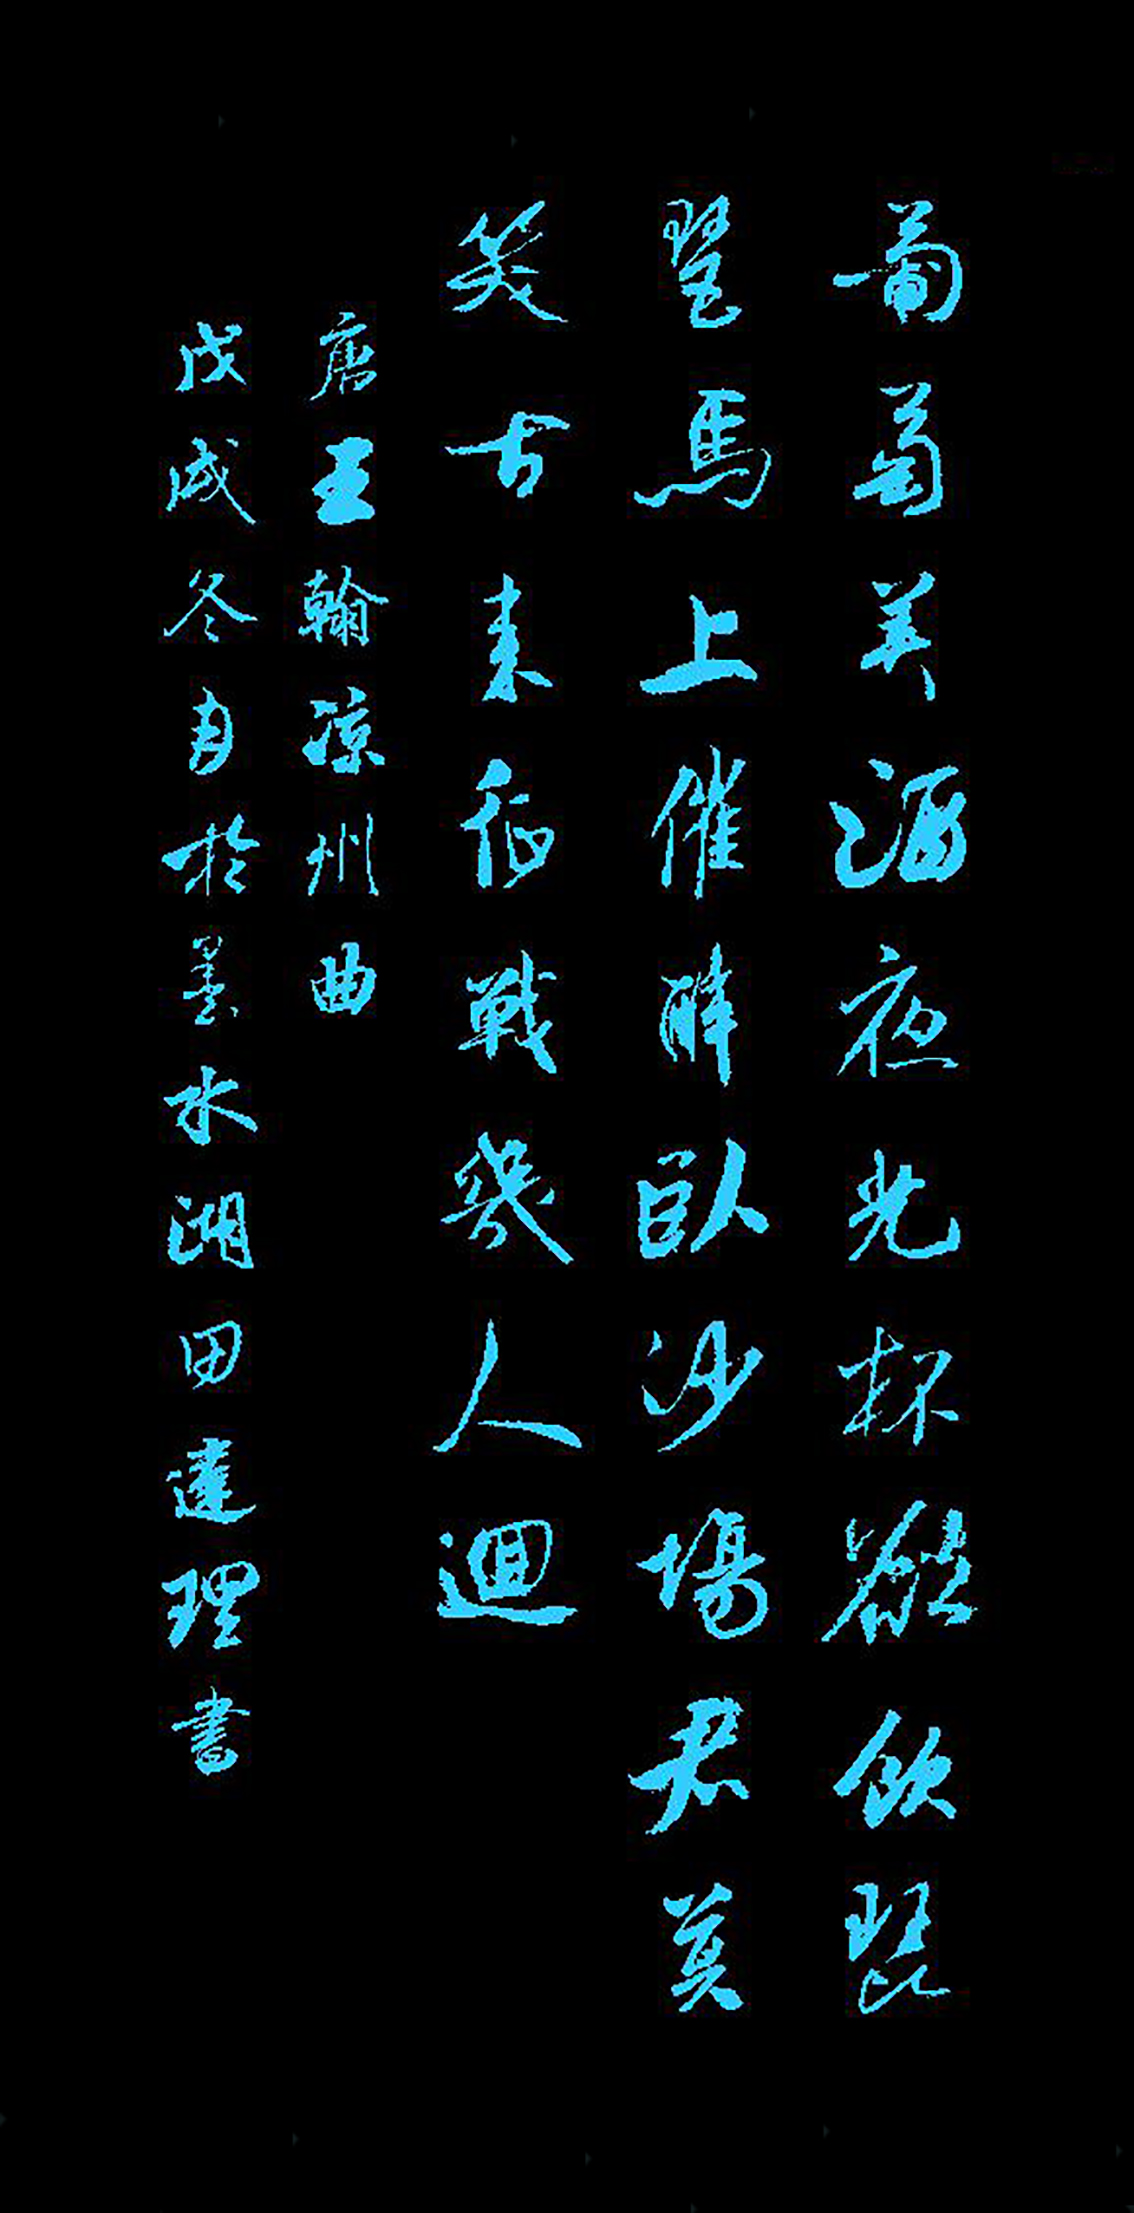 葡萄美酒夜光杯欲飲琵
琶馬上催醉臥沙場君莫
笑古来征戰幾人迴
唐王翰涼州曲
戊戌冬月於墨水湖田達理書